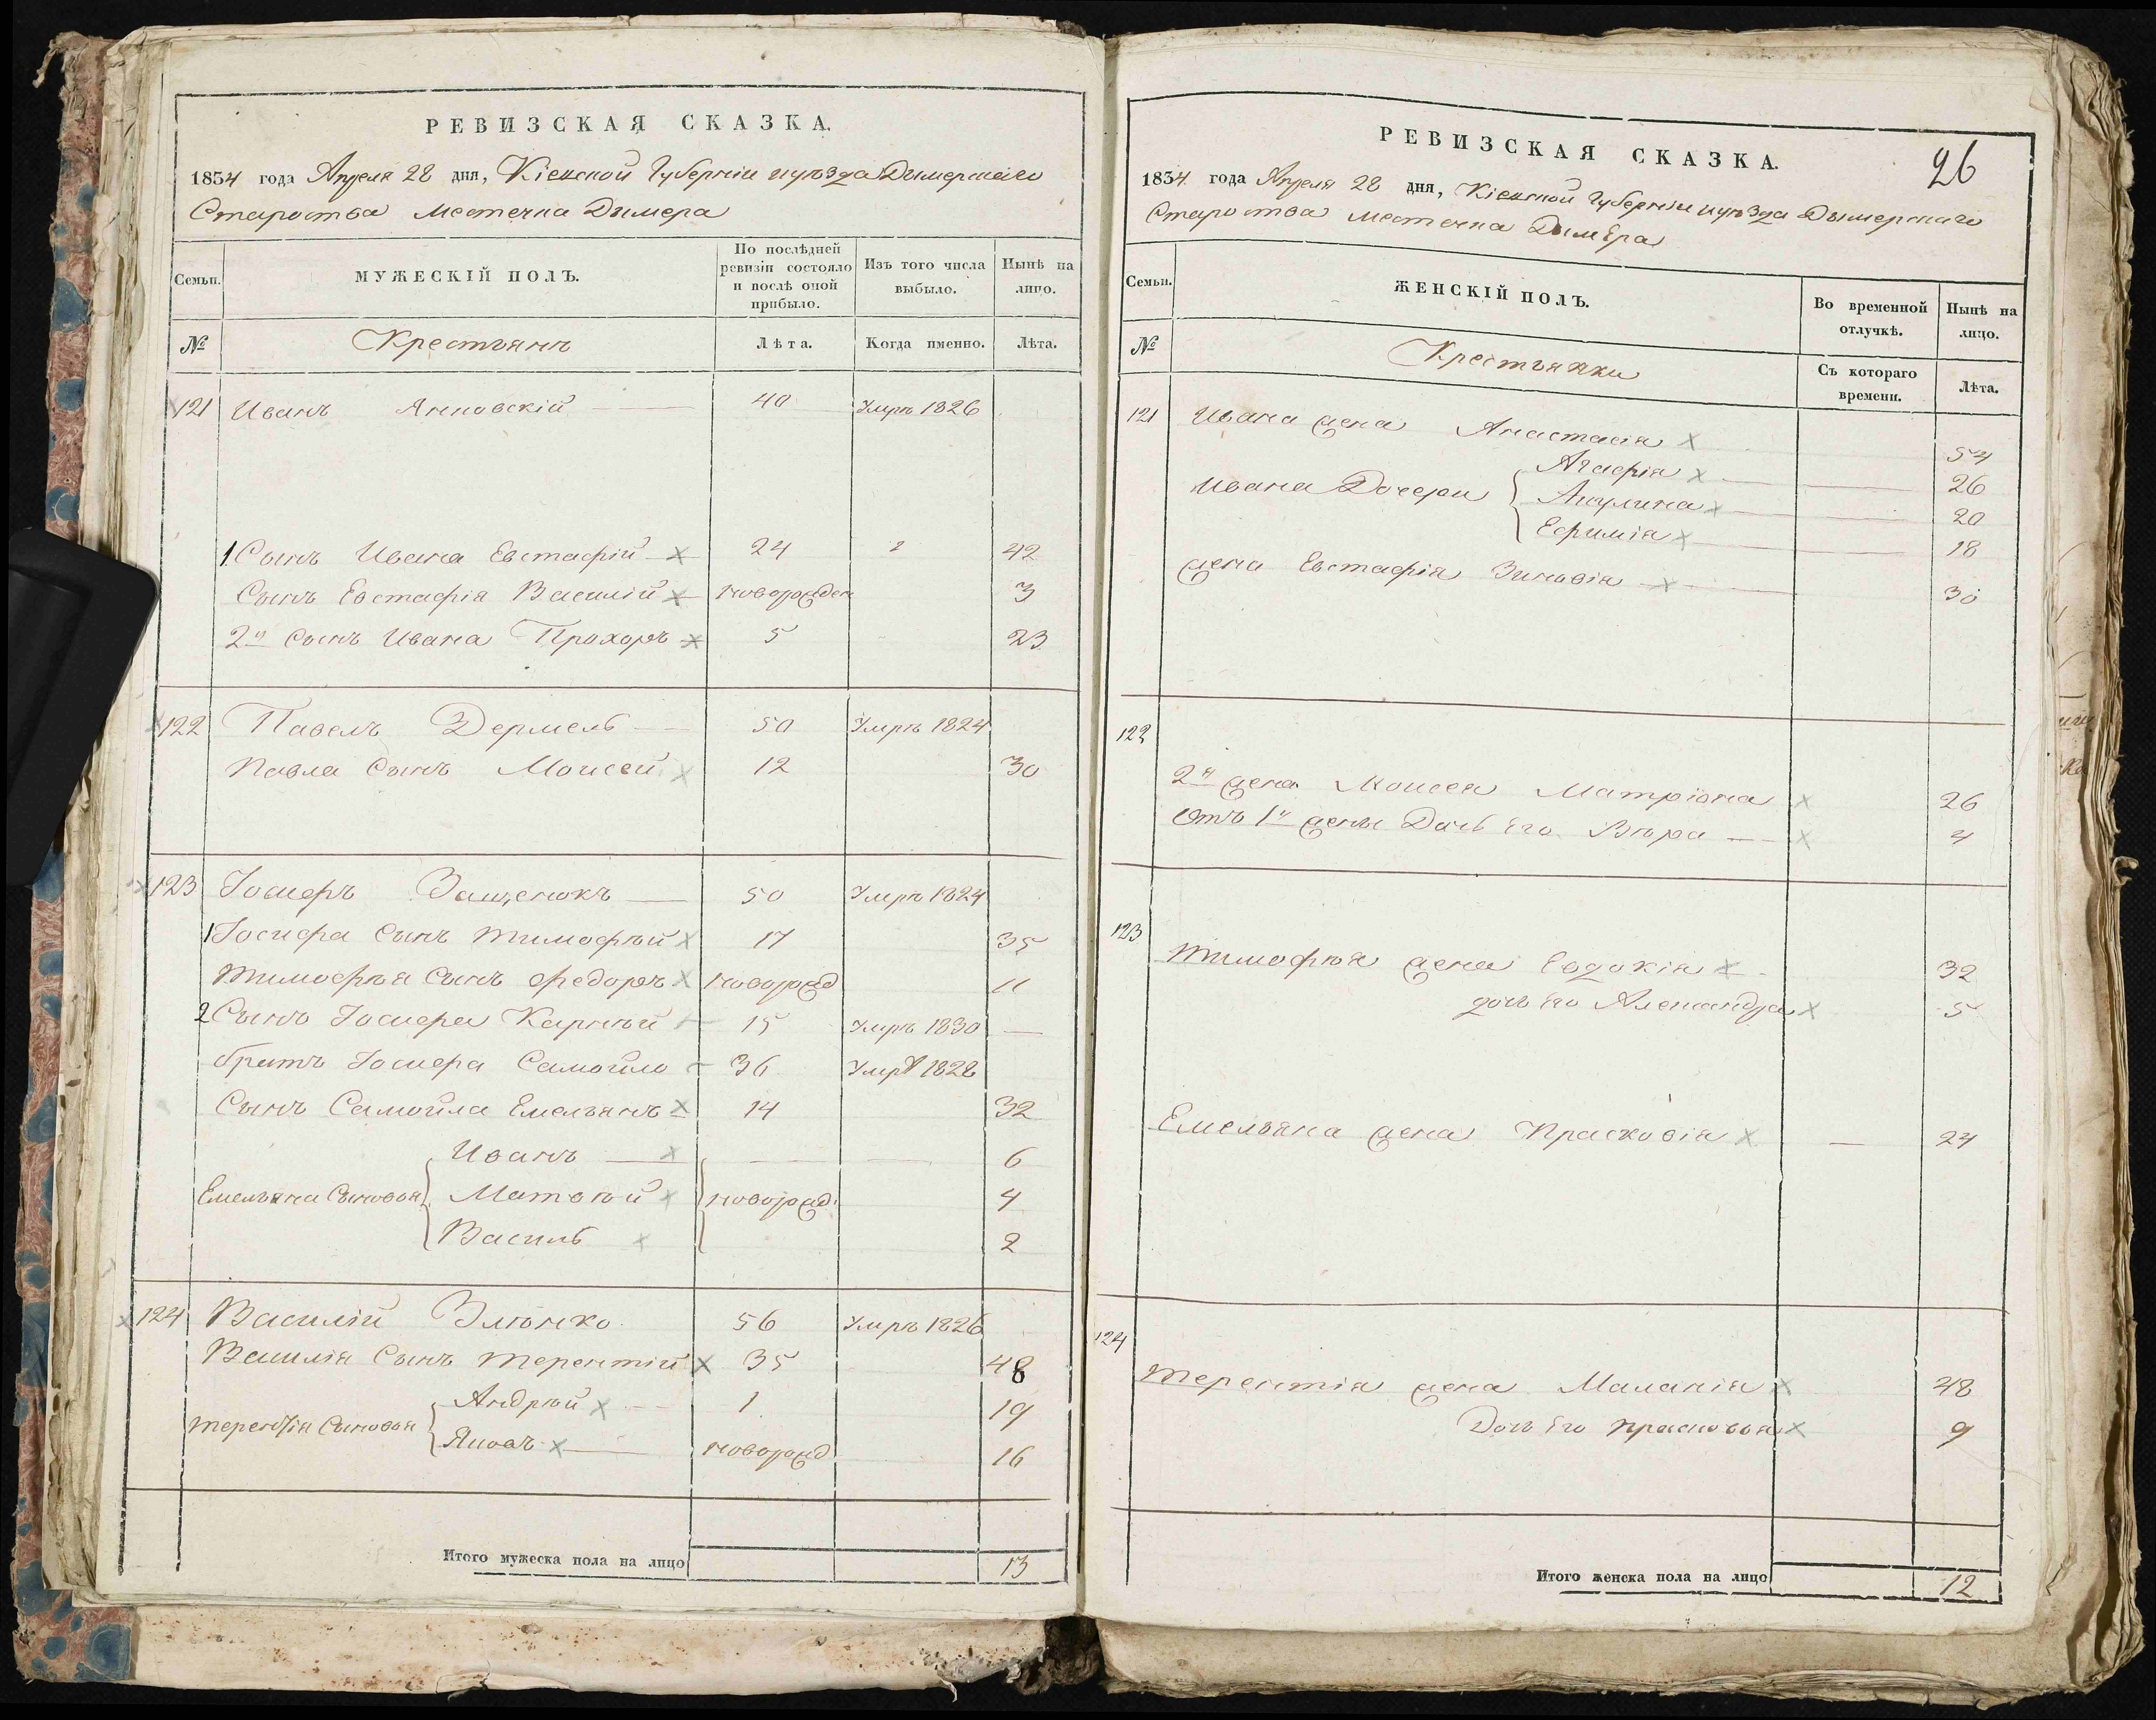 РЕВИЗСКАЯ СКАЗКА.
1834 года Апреля 28 дня, Кіевской Губерніи и уѣзда Дымерскаго
Староства местечка Димера
Семьи.
МУЖЕСКІЙ ПОЛЪ.
По послѣдней ревизіи состояло и послѣ оной прибыло.
Изъ того числа выбыло.
Нынѣ на лицо.
№
Крестьянъ
Лѣта.
Когда именно.
Лѣта.
121 Иванъ 40 Умръ 1826
1 Сынъ Ивана Евстафій 24 42
Сынъ Евстафія Василій новорожден 3
2й сынъ Ивана Прохоръ 5 23
122 Павелъ Дермель 50 Умръ 1824
Павла Сынъ Моисей 12 30
123 Іосифъ Защенокъ 50 Умръ 1824
1 Іосифа Сынъ Тимофѣй 17 35
Тимофѣя Сынъ Федоръ новорожд 11
2 Сынъ Іосифа Карпѣй 15 Умръ 1830
братъ Іосифа Самойло 36 Умръ 1828
Сынъ Самойла Емельянъ 14 32
Иванъ 6
Емельяна Сыновья Матвѣй новорожд. 4
Василь 2
124 Василій 56 Умръ 1826
Василія Сынъ Терентій 35 48
Андрѣй 1 19
Терентія Сыновья Яковъ новорожд 16
Итого мужеска пола на лицо 13
26
РЕВИЗСКАЯ СКАЗКА.
1834 года Апреля 28 дня, Кіевской Губерніи и уѣзда Дымерскаго
Староства местечка Димера
Семьи.
ЖЕНСКІЙ ПОЛЪ.
Во временной отлучкѣ.
Нынѣ на лицо.
№
Крестьянки
Съ котораго времени.
Лѣта.
121 Ивана жена Анастасія 54
Агафія 26
Ивана Дочери Акулина 20
Ефимія 18
жена Евстафія Зиновія 30
122
2я жена Моисея Матріона 26
Отъ 1й жены Дочь Его Вѣра 4
123
Тимофѣя жена Евдокія 32
дочь его Александра 5
Емельяна жена Прасковія 24
124
Терентія жена Маланія 48
Дочь Его Прасковья 9
Итого женска пола на лицо 12